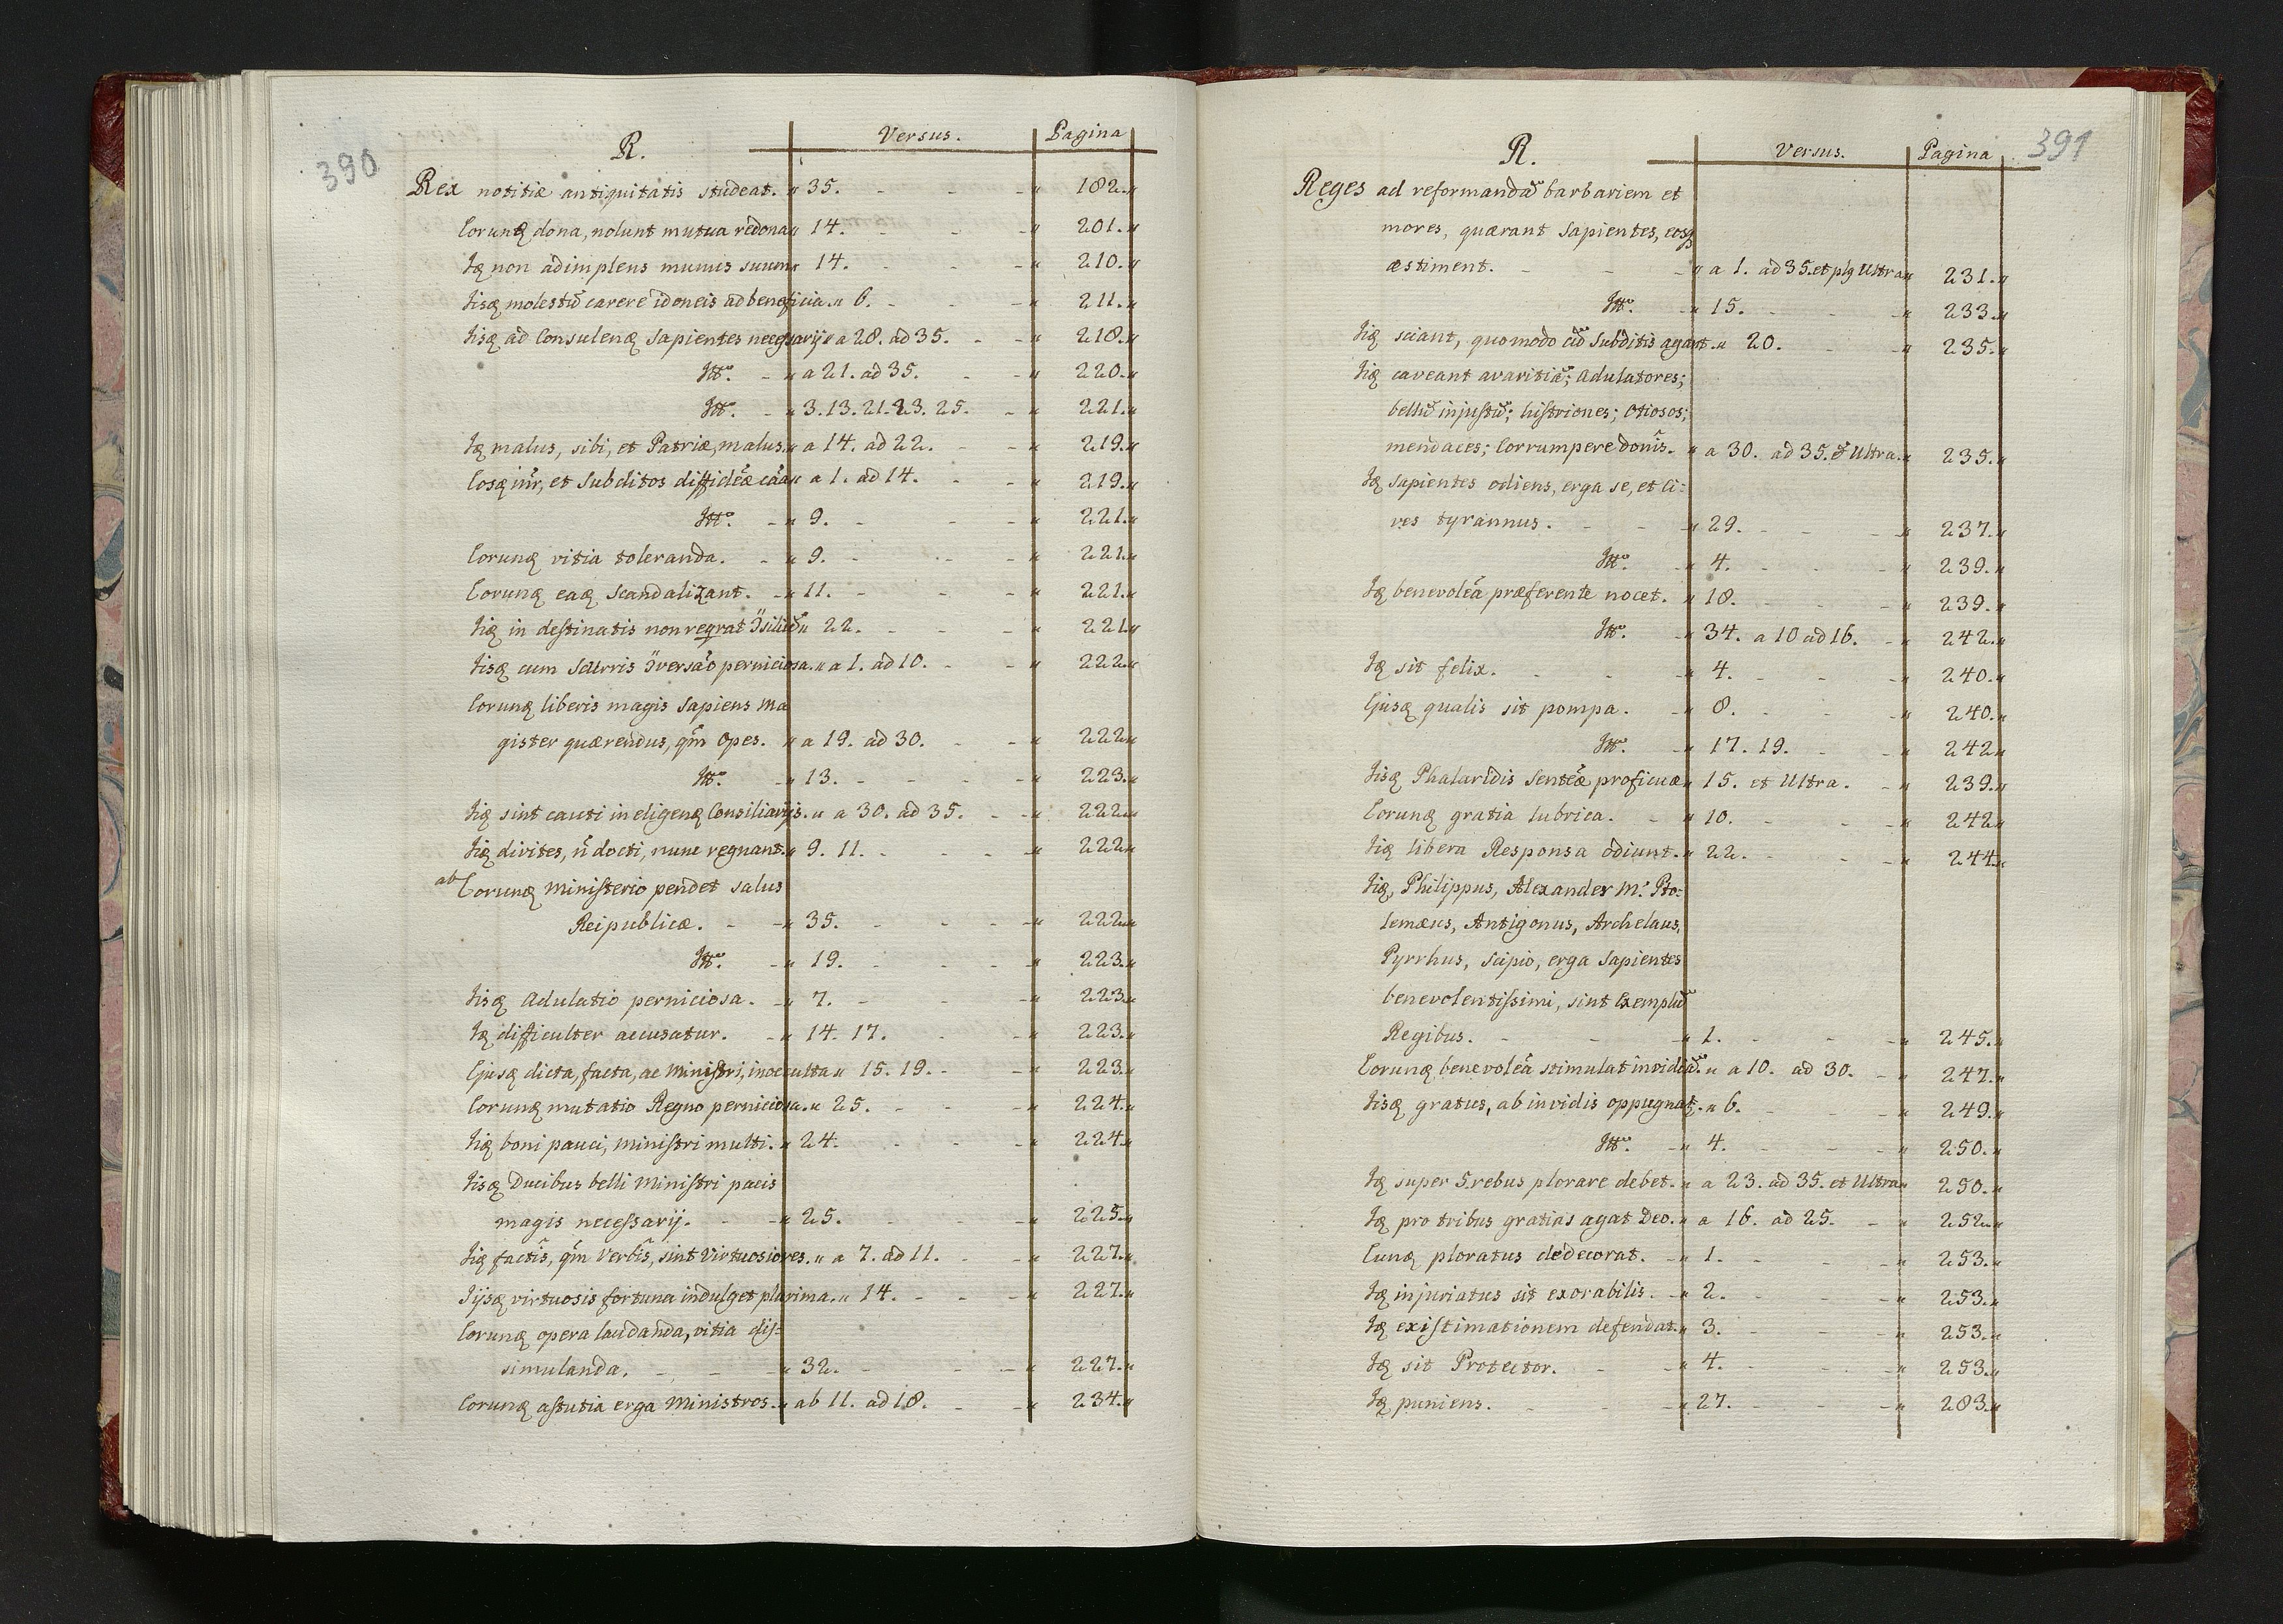 390
R. Versus. Pagina
Rex notitiæ antiquitatis studeat. " 35. - - - " 182."
Eorunq dona, nolunt mutua redona " 14. - - - " 201."
Iq non adimplens munus suum " 14. - - " 210."
Iisq molestũ carere idoneis ad beneficia. " 6. - - - " 211."
Iisq ad Consulenq Sapientes necessarij " a 28. ad 35. - - " 218."
Itt°. - " a 21. ad 35. - - " 220."
Itt°. - " 3. 13. 21. 23. 25. - " 221."
Iq malus, sibi, et Patriæ, malus. " a 14. ad 22. - - " 219."
Eosq inr̃, et Subditos diffideæ caa " a 1. ad 14. - - " 219."
Itt°. - " 9. - - - " 221."
Eorunq vitia toleranda. - " 9. - - - " 221."
Eorunq eaq Scandalizant. - " 11. - - - " 221."
Iiq in destinatis non regrat Ɔsiliũ " 22. - - - " 221"
Iisq cum Scurris Ɔversão perniciosa. " a 1. ad 10. - - " 222"
Eorunq liberis magis Sapiens Ma
gister quærendus, qm̃ Opes. " a 19. ad 30. - - " 222"
Itt°. - " 13. - - - " 223."
Iiq sint cauti in eligenq Consiliarijs. " a 30. ad 35. - - " 222"
Iiq divites, ñ docti, nunc regnant. " 9. 11. - - - " 222"
ab Eorunq Ministerio pendet salus
Reipublicæ. - - " 35. - - - " 222"
Itt°. - " 19. - - - " 223."
Iisq Adulatio perniciosa. - " 7. - - - " 223"
Iq difficulter accusatur. - " 14. 17. - - " 223."
Ejusq dicta, facta, ac Ministri, inocculta " 15. 19. - - " 223."
Eorunq mutatio Regno perniciosa. " 25. - - - " 224."
Iiq boni pauci, Ministri multi. " 24. - - - " 224"
Iisq Ducibus belli Ministri pacis
magis necessarij. - - " 25. - - - " 225"
Iiq factis, qm̃ Verbis, sint Virtuosiores. " a 7. ad 11. - - " 227."
Iijsq virtuosis fortuna indulget plurima. " 14. - - - " 227."
Eorunq opera laudanda, vitia dis-
simulanda. - - - " 32. - - - " 227."
Eorunq astutia erga Ministros. " ab 11. ad 18. - - " 234."
R. Versus. Pagina 391
Reges ad reformandã barbariem et
mores, quærant Sapientes, eosq
æstiment. - - - " a 1. ad 35. et plq Ultra " 231."
Itt°. - " 15. - - - " 233."
Iiq sciant, quomodo cũ Subditis agant. " 20. - - " 235."
Iiq caveant avaritiã; Adulatores;
bellũ injustũ; histriones; Otiosos;
mendaces; Corrumpere donis. " a 30. ad 35. & Ultra. " 235."
Iq Sapientes odiens, erga se, et Ci-
ves tyrannus. - - " 29. - - - " 237."
Itt°. - " 4. - - - " 239."
Iq benevoleã præferente nocet. " 18. - - - " 239."
Itt°. - " 34. a 10 ad 16. - " 242."
Iq sit felix. - - - " 4. - - - " 240."
Ejusq qualis sit pompa. - " 8. - - - " 240."
Itt°. - " 17. 19. - - " 242"
Iisq Phalaridis Senteæ proficuæ " 15. et Ultra. - " 239."
Eorunq gratia lubrica. - " 10. - - - " 242"
Iiq libera Responsa odiunt. " 22. - - - " 244"
Iiq, Philippus, Alexander M.s Pto-
lemæus, Antigonus, Archelaus,
Pyrrhus, Scipio, erga Sapientes
benevolentissimi, sint Exemplũ
Regibus. - - - " 1. - - - " 245."
Eorunq benevoleã stimulat invidiã. " a 10. ad 30. - " 247."
Iisq gratus, ab invidis oppugnat. " 6. - - - " 249."
Itt°. - " 4. - - - " 250."
Iq super 5. rebus plorare debet. " a 23. ad 35. et Ultra " 250."
Iq pro tribus gratias agat Deo. " a 16. ad 25. - " 252"
Eunq ploratus dedecorat. - " 1. - - - " 253."
Iq injuriatus sit exorabilis. - " 2. - - - " 253."
Iq existimationem defendat. " 3. - - - " 253."
Iq sit Protector. - - " 4. - - - " 253."
Iq puniens. - - - " 27. - - - " 283."